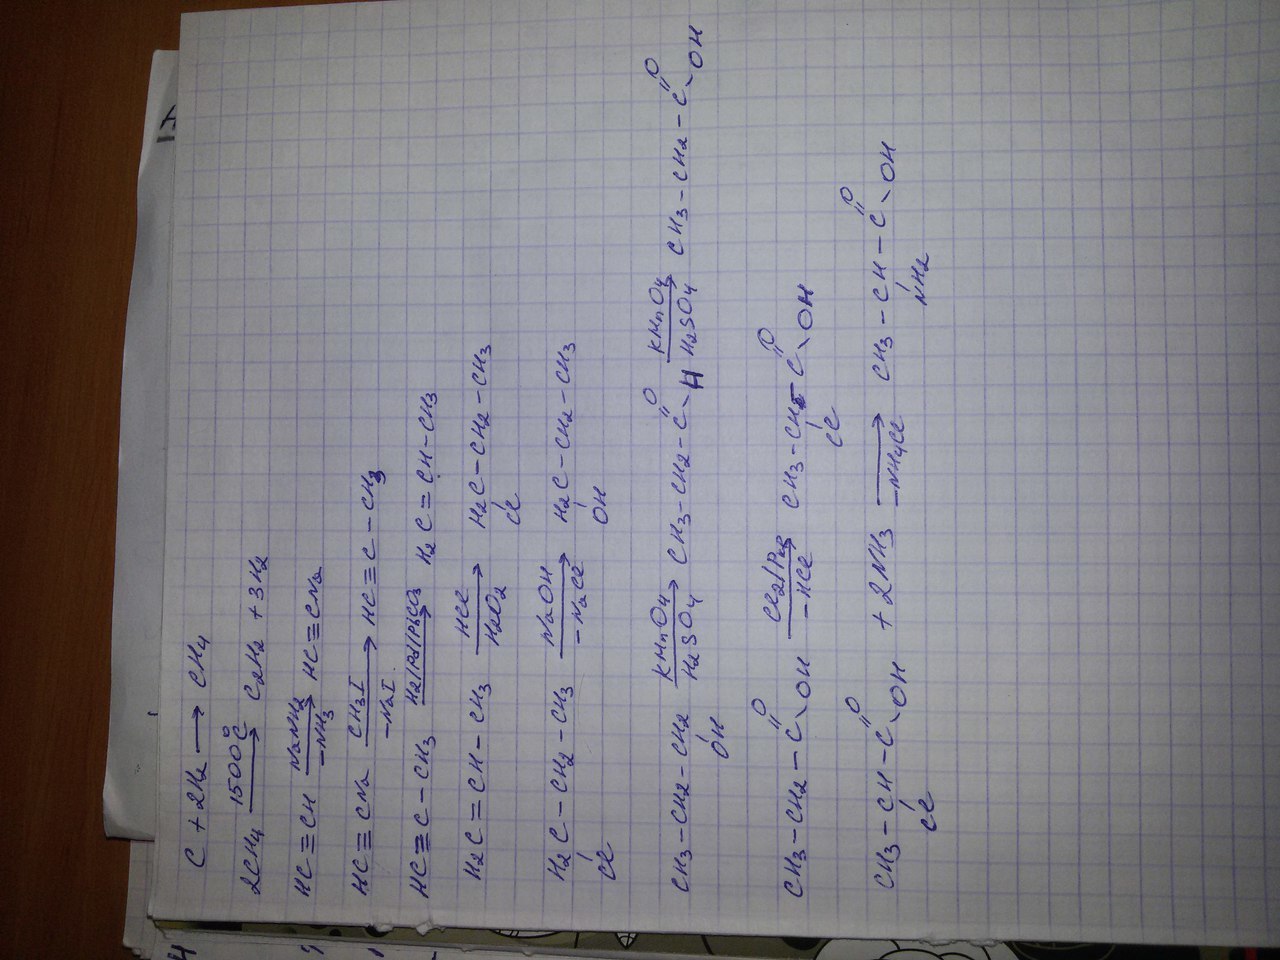 C + 2H₂ ⟶ CH₄
2CH₄ —1500°C→ C₂H₂ + 3H₂
HC≡CH —NaNH₂ / -NH₃→ HC≡CNa
HC≡CNa —CH₃I / -NaI→ HC≡C-CH₃
HC≡C-CH₃ —H₂/Pd/PbCO₃→ H₂C=CH-CH₃
H₂C=CH-CH₃ —HCl / H₂O₂→ H₂C(Cl)-CH₂-CH₃
H₂C(Cl)-CH₂-CH₃ —NaOH / -NaCl→ H₂C(OH)-CH₂-CH₃
CH₃-CH₂-CH₂(OH) —KMnO₄ / H₂SO₄→ CH₃-CH₂-C(=O)-H —KMnO₄ / H₂SO₄→ CH₃-CH₂-C(=O)-OH
CH₃-CH₂-C(=O)-OH —Cl₂/Pкр / -HCl→ CH₃-CH(Cl)-C(=O)-OH
CH₃-CH(Cl)-C(=O)-OH + 2NH₃ —-NH₄Cl→ CH₃-CH(NH₂)-C(=O)-OH